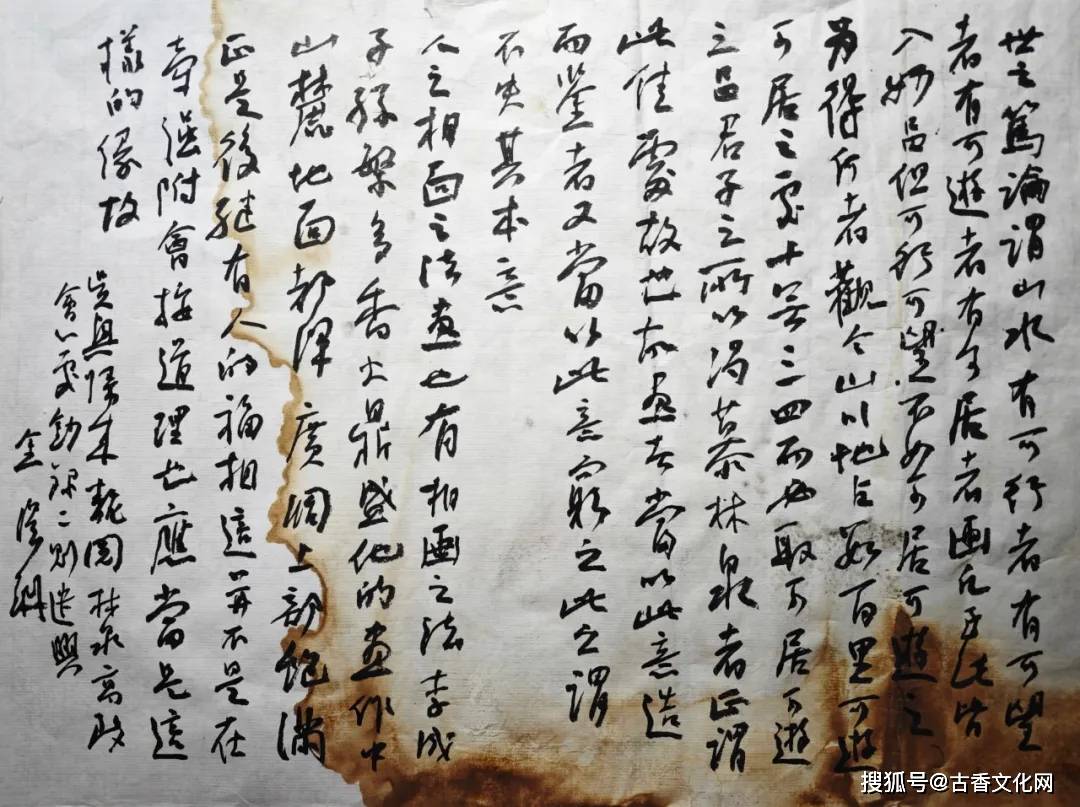 世之篤論謂山水有可行者有可望
者有可遊者有可居者画凡至此皆
入妙品但可行可望不如可居可遊之
为得何者觀今山川地占数百里可遊
可居之處十無三四而必取可居可遊
之品君子之所以渴慕林泉者正謂
此佳處故也故畫者當以此意造
而鉴者又當以此意窮之此之謂
不失其本意
人之相面之法畫也有相画之法李成
子孫繁多香火鼎盛他的畫作中
山麓地面都渾廣阔上部飽滿
正是後继有人的福相這并不是在
牵强附會按道理也應當是這
樣的缘故
吳興歸来林泉高致
會心處鈔録二則遣興
金
搜狐号@古香文化网